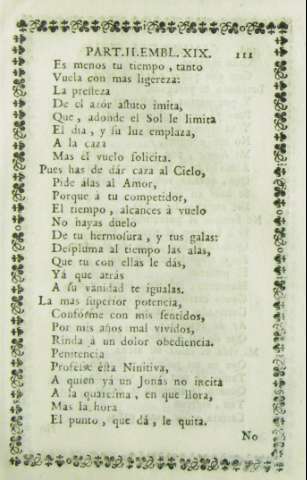 PART.II.EMBL.XIX. 111
Es menos tu tiempo, tanto
Vuela con mas ligereza:
La presteza
De el azór astuto imita,
Que, adonde el Sol le limita
El dia, y su luz emplaza,
A la caza
Mas el vuelo solicita.
Pues has de dár caza al Cielo,
Pide álas al Amor,
Porque á tu competidor,
El tiempo, alcances á vuelo
No hayas duelo
De tu hermosura, y tus galas:
Despluma al tiempo las alas,
Que tu con ellas le dás,
Yá que atrás
A su vanidad te igualas.
La mas superior potencia,
Conforme con mis sentidos,
Por mis años mal vividos,
Rinda á un dolor obediencia.
Penitencia
Profese ésta Ninitiva,
A quien yá un Jonás no incita
A la quaresma, en que llora,
Mas la hora
El punto, que dá, le quita.
No